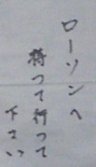 ローソンへ
持って行って
下さい